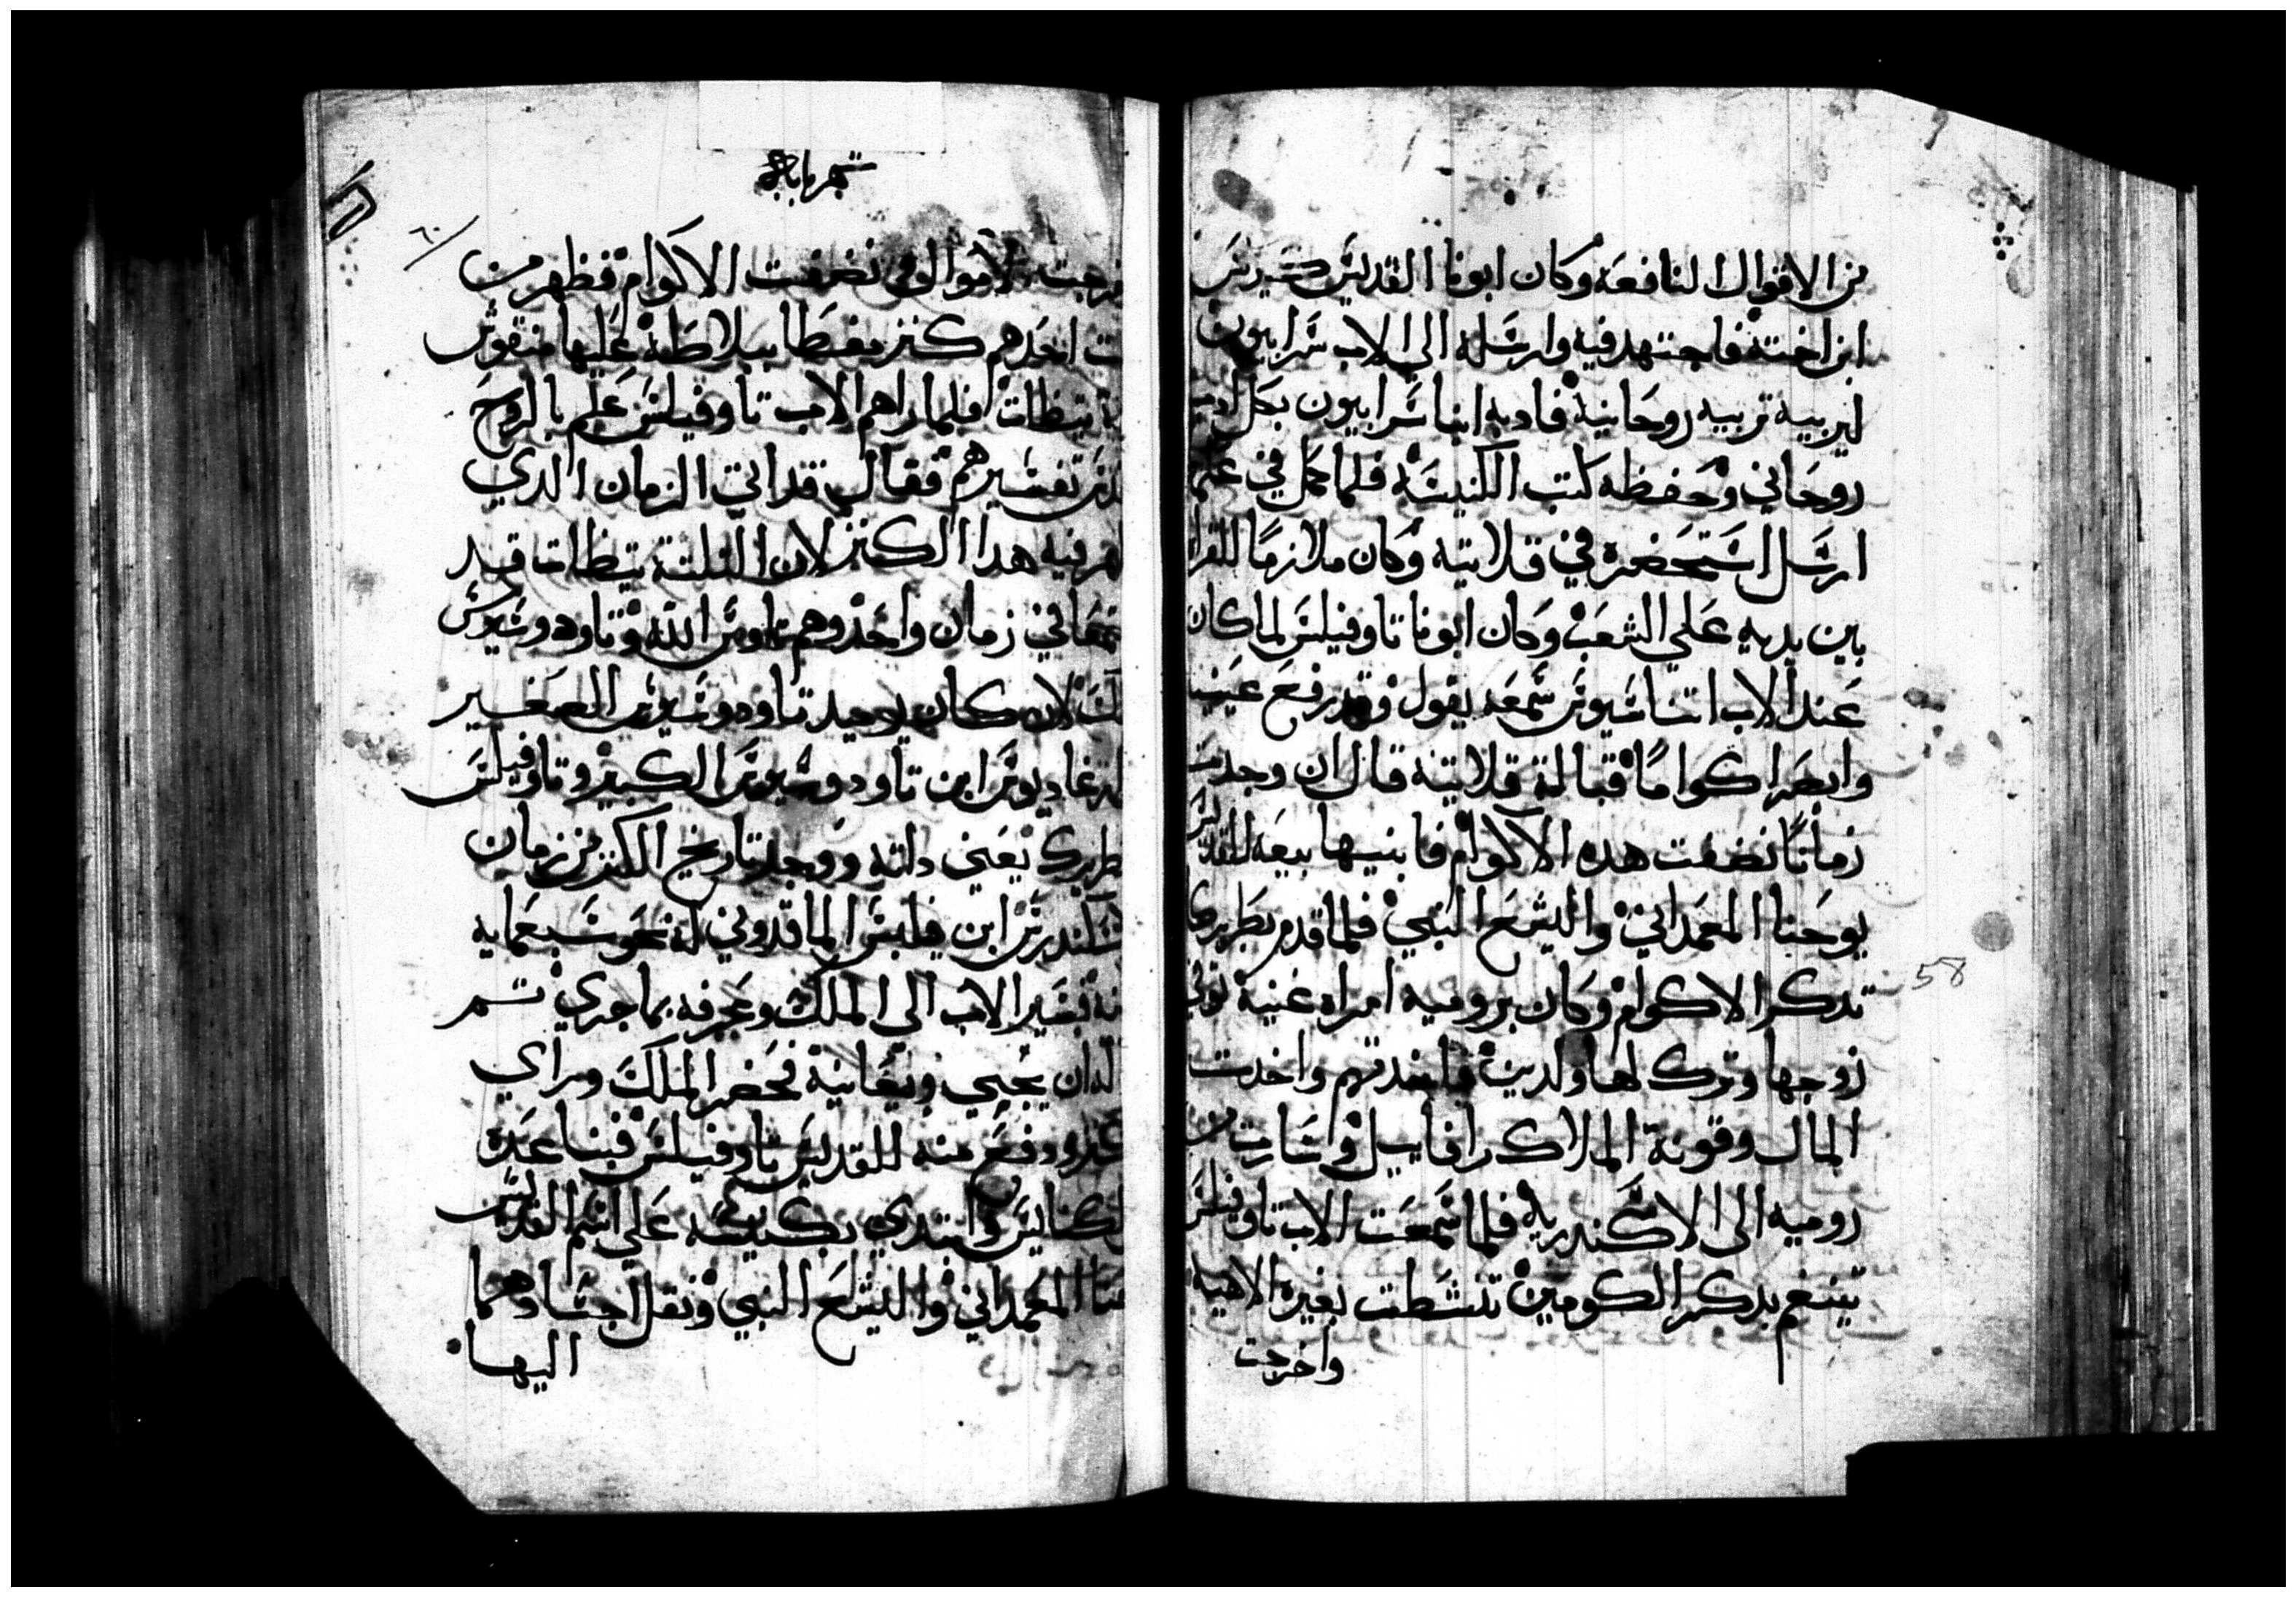 من الاقوال النافعه وكان ابونا القديس كيرلس
ابن اخته فاجتهد فيه وارسله الى الاب سرابيون
ليربيه تربيه روحانية فادبه انبا سرابيون بكل ادب
روحاني وحفظه كتب الكنيسة فلما كمل في علم
ارسل استحضره في قلايته وكان ملازما للقراه
بين يديه علي الشعب وكان ابونا تاوفيلس لما كان
عند الاب اتناسيوس سمعه يقول وقد رفع عينيه
وابصر اكواما قبالة قلايته قال ان وجدت
زمانا نضفت هده الاكوام فابنيها بيعه للقديس
يوحنا المعمداني واليشع النبي فلما قدم بطريركا
تدكر الاكوام وكان بروميه امراه غنية توفي
زوجها وترك لها ولدين فاخدتهم واخدت
المال وقونة الملاك رافاييل وسارت من
روميه الى الاسكندرية فلما سمعت الاب تاوفيلس
يتنغم بدكر الكومين تنشطت بغيرة الاهيه
واخرجت
58
شهر بابه
٦٠
الاموال وفي نضفت الاكوام فظهر من
احدهم كنز مغطا ببلاطة عليها منقوش
تيظات فلما راهم الاب تاوفيلس علم بالروح
تفسيرهم فقال قد اتي الزمان الدي
فيه هدا الكنز لان التلتة تيظات قيد
في زمان واحد وهم تاوس الله وتاودوسيوس
لان كان يوميد تاودوسيوس الصغير
ابن تاودوسيوس الكبير وتاوفيلس
يعني داته ووجد تاريخ الكنز من زمان
ابن فيلبس الماقدوني له نحو سبعمايه
فسير الاب الى الملك وعرفه بما جري تم
ان يجي ويعاينه فحضر الملك وراي
ودفع منه للقديس تاوفيلس فبنا عدة
وابتدي بكنيسه علي اسم القديس
المعمداني واليشع النبي ونقل اجسادهما
اليها